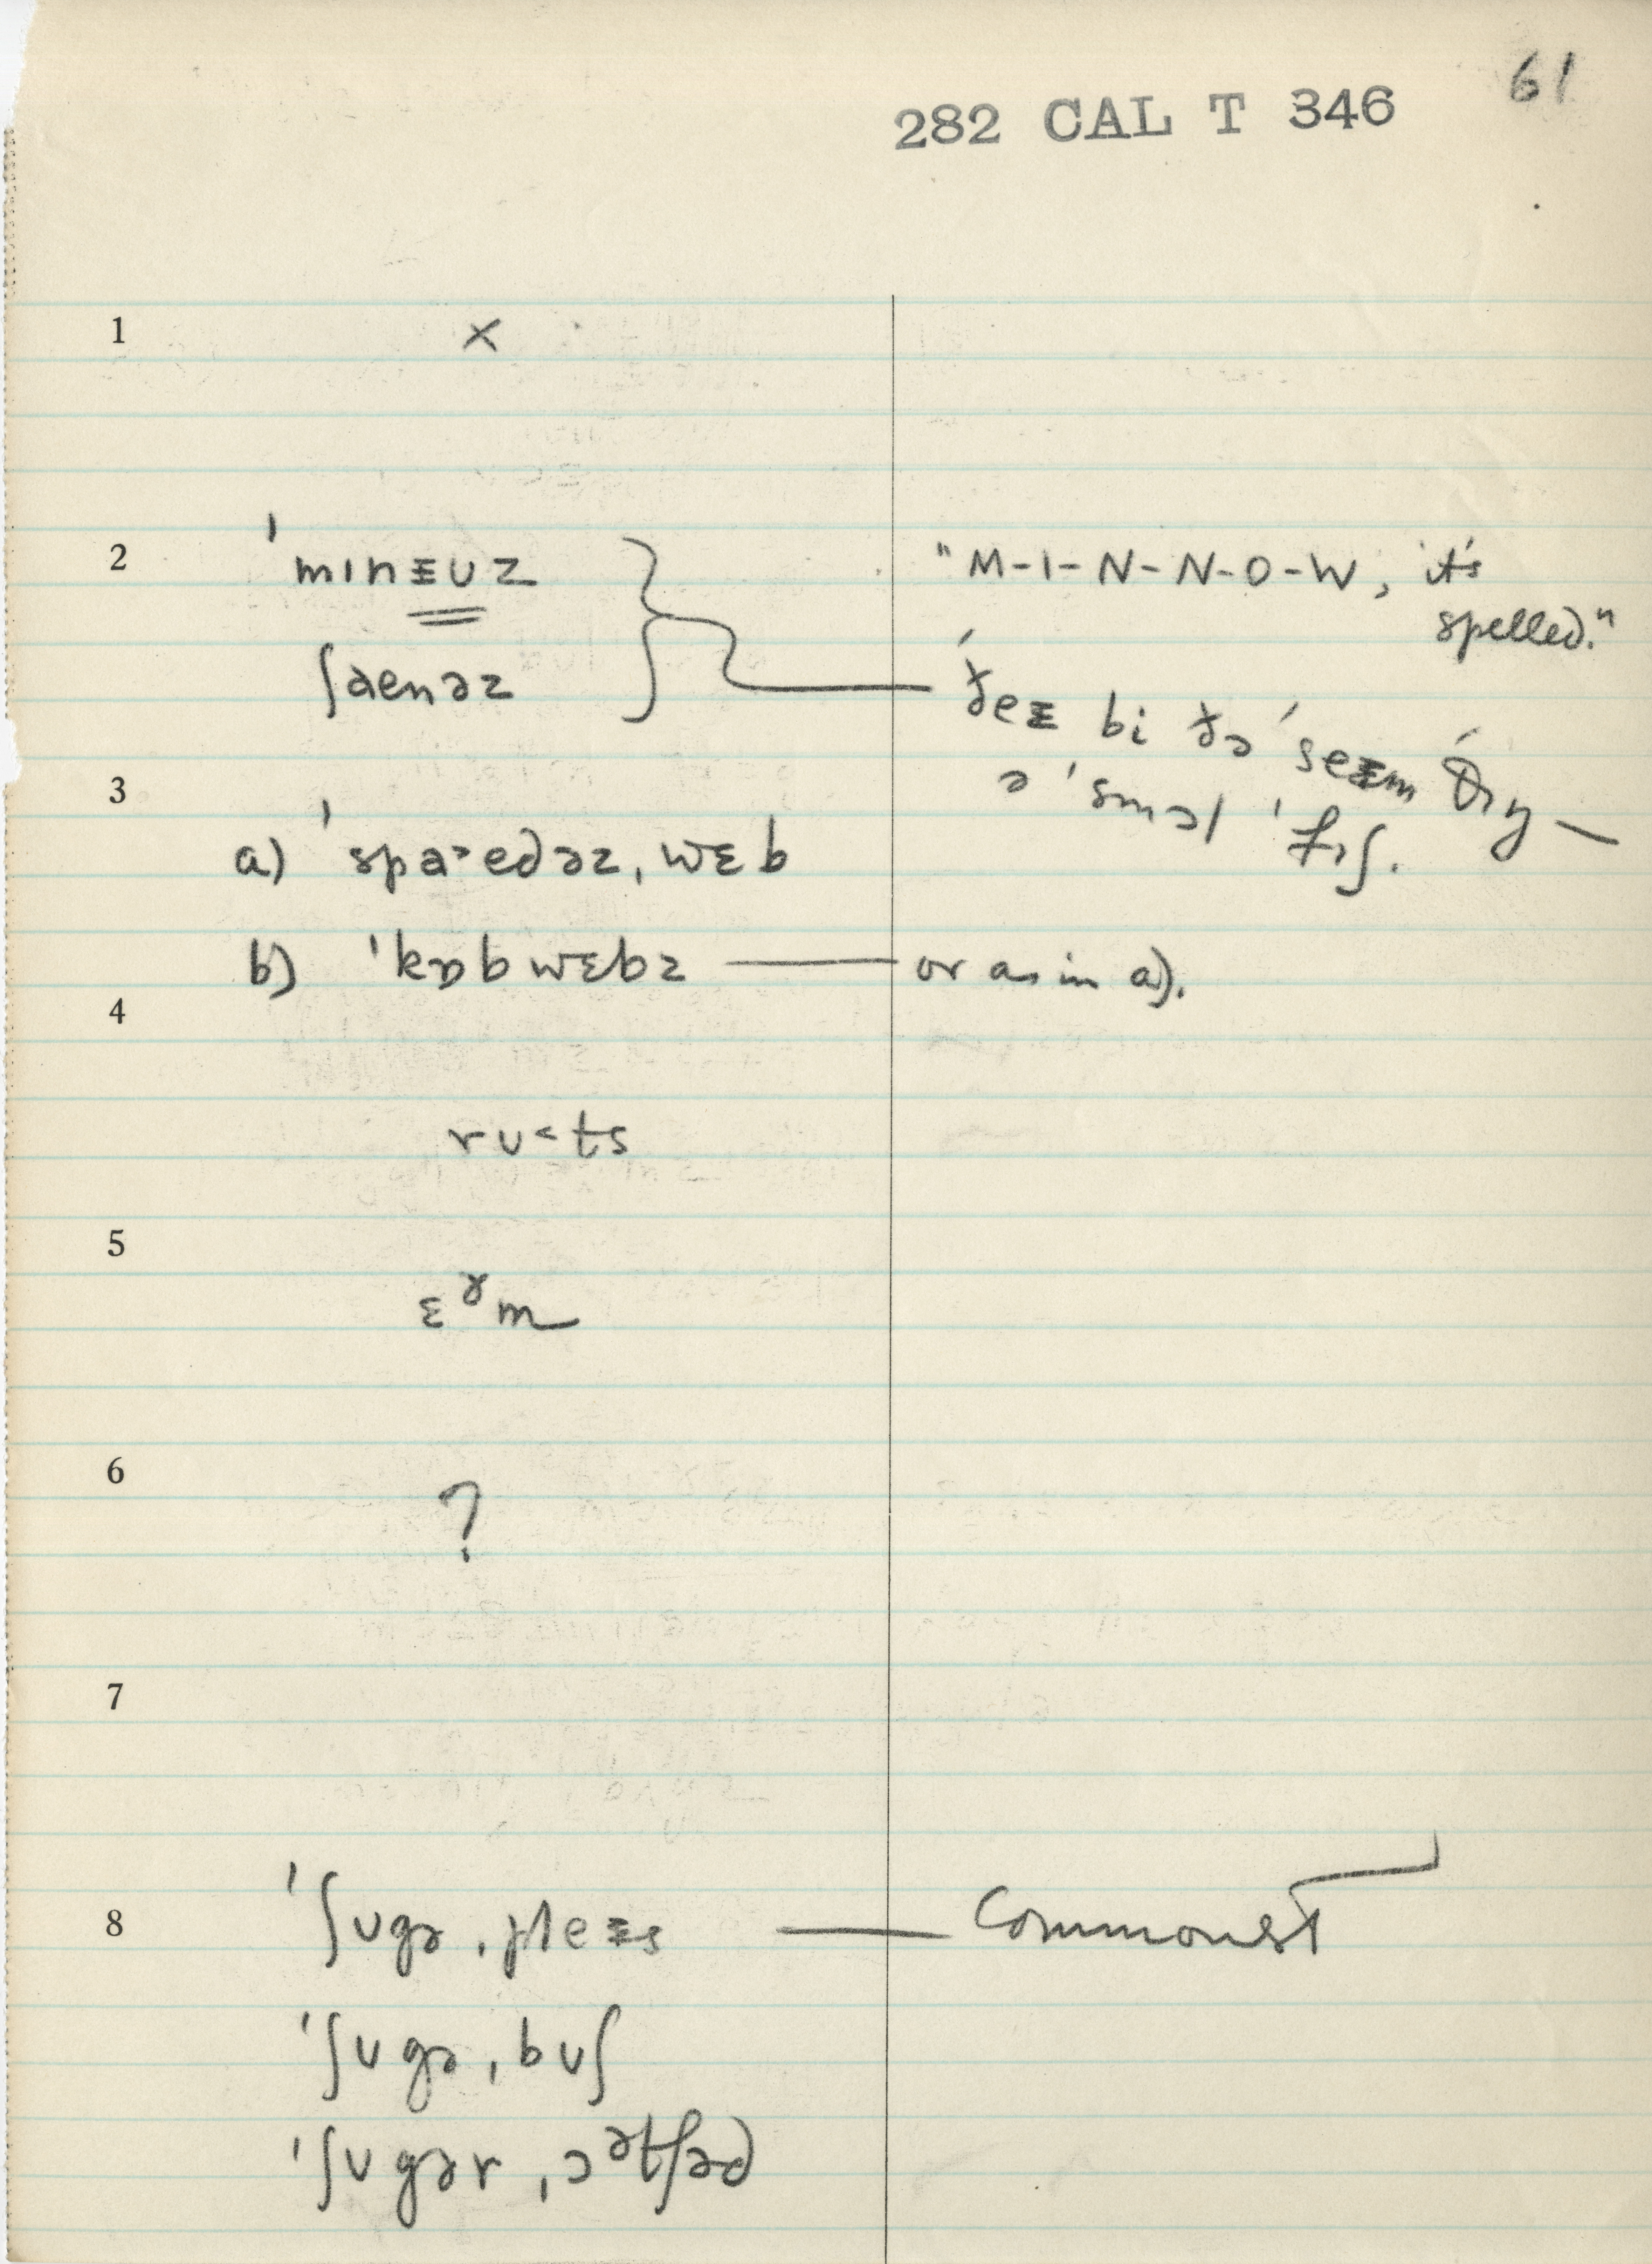 61
282 CAL T 346
1
×
2
ˈmɪnɪʊz
"M-I-N-N-O-W, it's
spelled."
ʃaenəz
ðeɪ bi ðə ˈseɪm θɪŋ—
ə ˈsmɔl ˈfɪʃ.
3
a) ˈspaˑedəz ˌwɛb
b) ˈkɒbwɛbz — or as in a).
4
rʊ˂ts
5
ɛᵊm
6
?
7
8
ˈʃʊgə ˌpleɪs — Commonest
ˈʃʊgə ˌbʊʃ
ˈʃʊgər ˌɔətʃəd